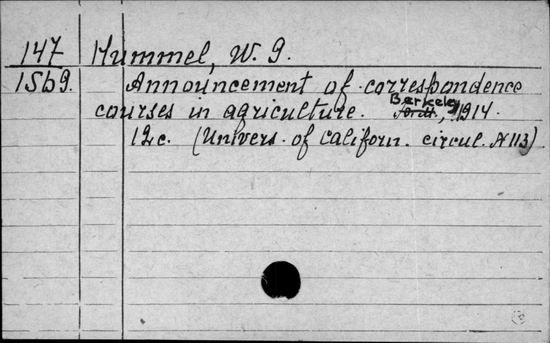 147 Hummel, W. G.
1569. Announcement of correspondence
courses in agriculture. Berkeley, 1914.
12c. (Univers. of Californ. circul. N 113)